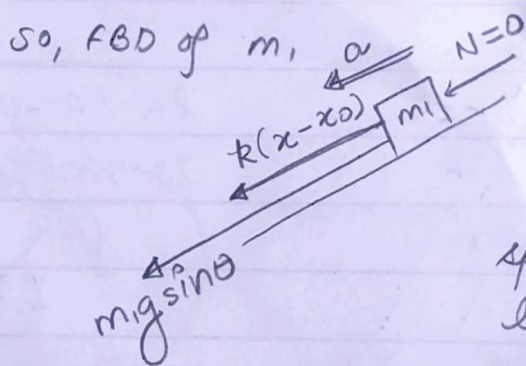 so, FBD of m₁
a
N=0
m₁
k(x-x₀)
m₁g sinθ